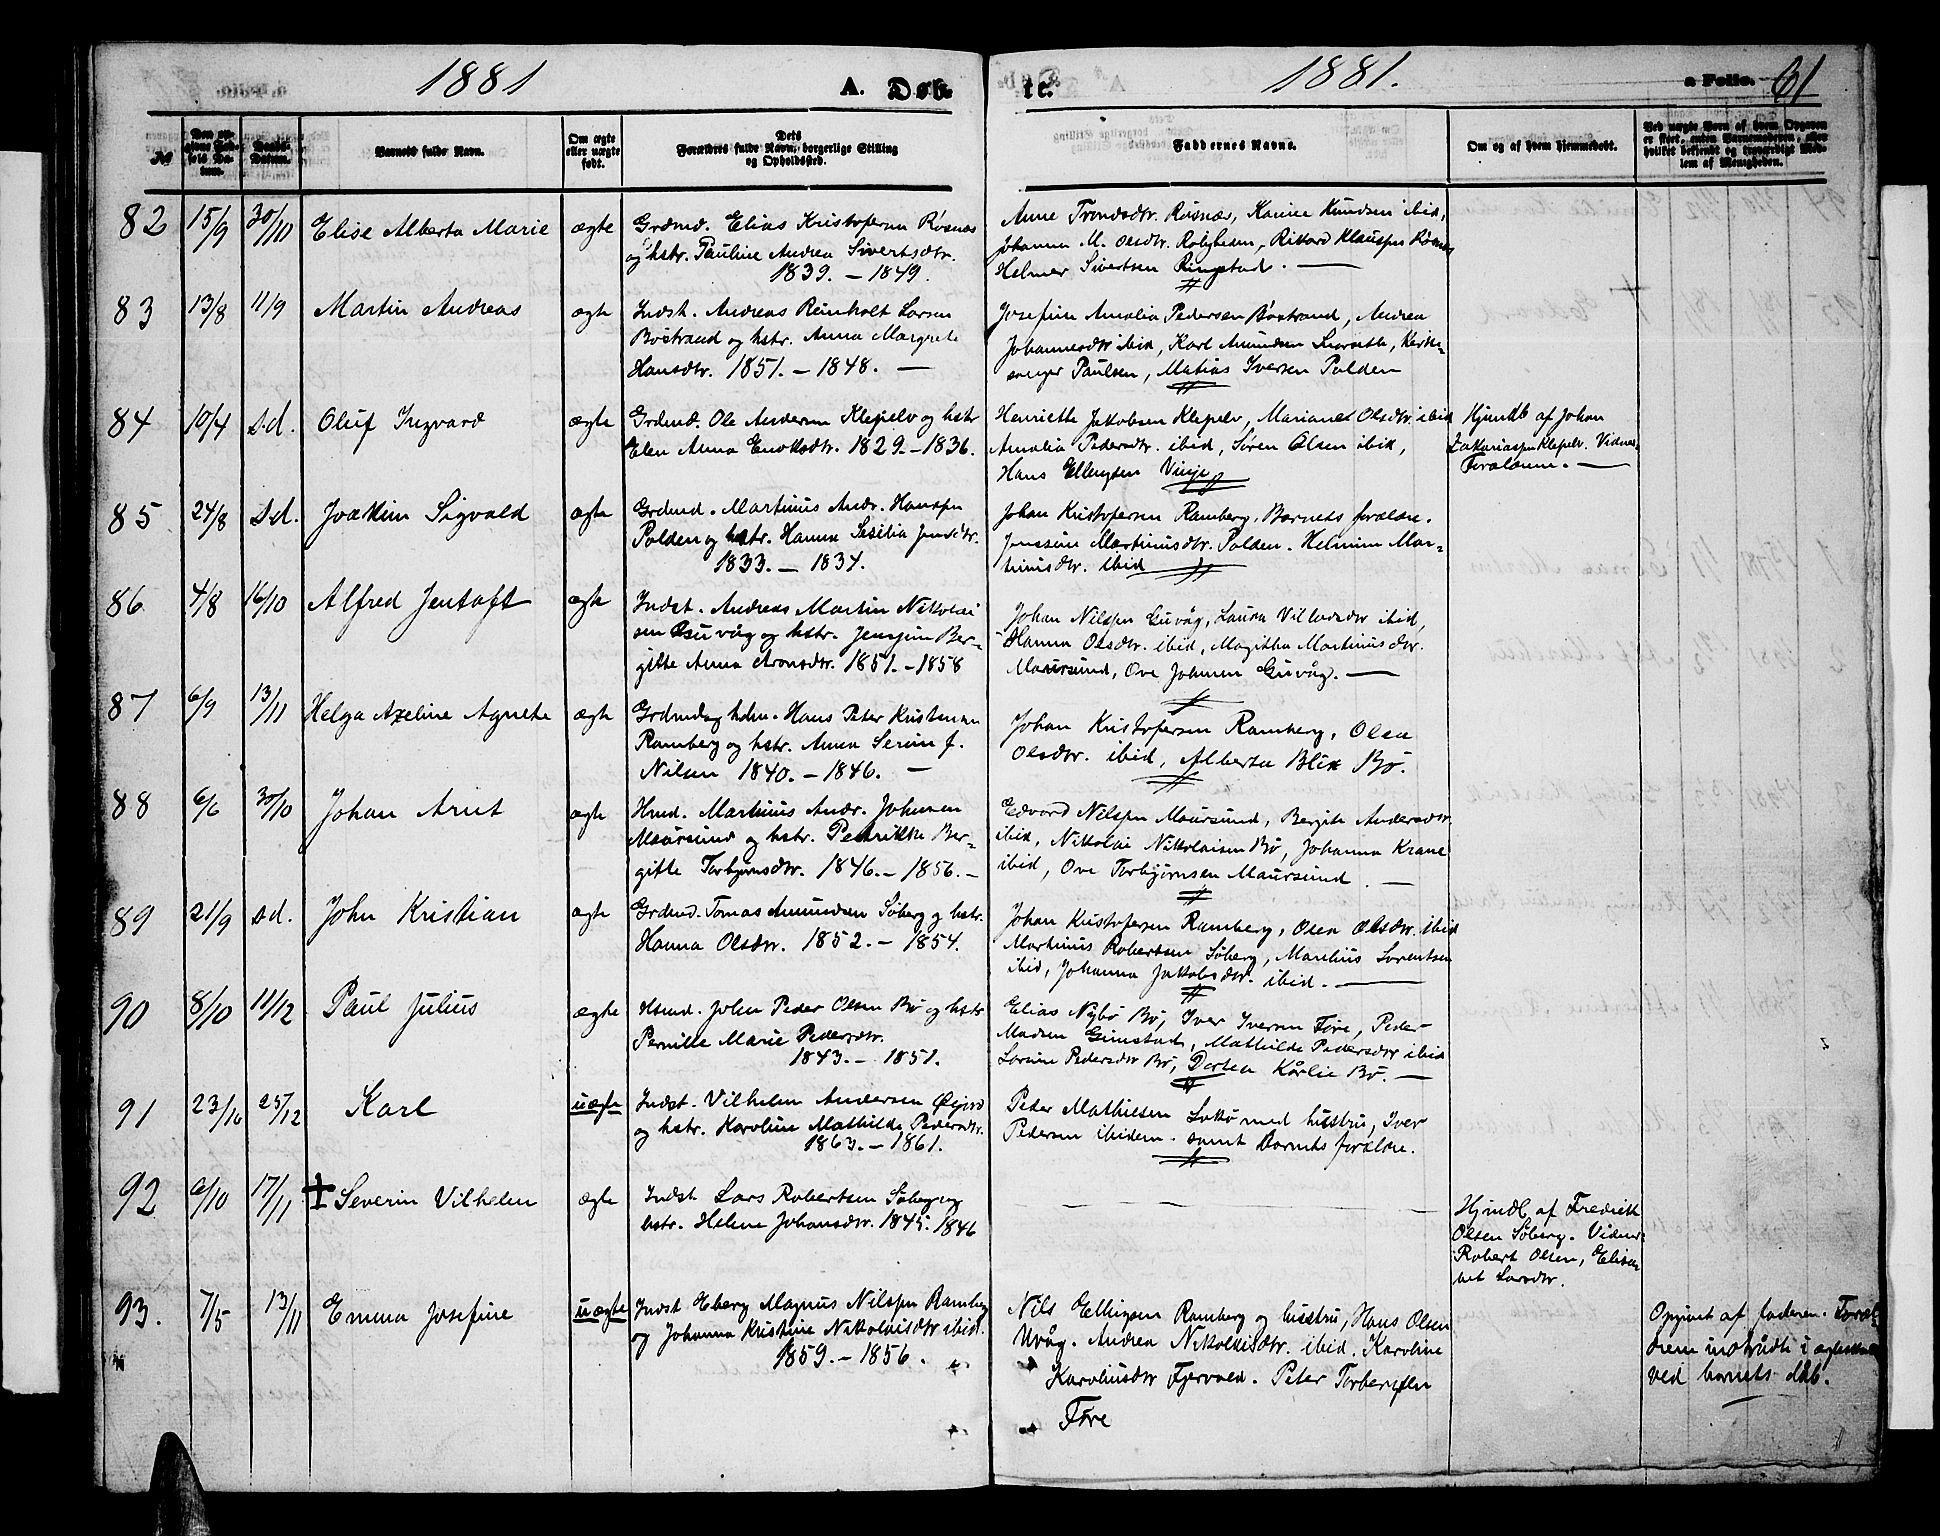 1881
A. Døb
te.
1881.
a Folio. 61
No
Den opgivne Fødsels Datum.
Daabs-Datum.
Barnets fulde Navn.
Om ægte eller uægte født.
Dets Forældres fulde Navn, borgerlige Stilling og Opholdssted.
Faddernes Navne.
Om og af hvem hjemmedøbt.
82 15/9 30/10 Elise Alberta Marie ægte Grdmd. Elias Kristofersen Røsnæs
og hstr. Pauline Andrea Sivertsdtr.
1839. — 1849.
Anne Trondsdtr. Røsnæs, Karine Knudsen ibid,
Johanna M. Olsdtr. Roligheden, Rikard Klausen Røsnæs
Helmer Sivertsen Ringstad. —
83 13/8 11/9 Martin Andreas ægte Indst. Andreas Reinholt Larsen
Bøstrand og hstr. Anna Margrete
Hansdtr. 1851. — 1848. —
Josefine Amalia Pedersen Bøstrand, Andrea
Johannesdtr ibid, Karl Amundsen, Kirke-
sanger Paulsen, Matias Iversen Polden
84 10/4 S.d. Oluf Ingvard ægte Grdmd. Ole Andersen Klepelv og hstr
Elen Anna Enoksdtr. 1829. — 1836.
Henriette Jakobsen Klepelv, Marianet Olsdtr. ibid
Amalia Pedersdtr. ibid, Søren Olsen ibid,
Hans Ellingsen Vinje
Hjmdb af Johan
Zakariassen Klepelv. Vidner
Forældrene. —
85 24/8 S.d. Joakim Sigvald ægte Grdmd. Martinus Andr. Hanssen
Polden og hstr. Hanna Sesilia Jensdtr.
1833. — 1834.
Johan Kristofersen Ramberg, Barnets forældre.
Jenssine Martinusdtr. Polden. Helmine Mar-
tinusdtr. ibid
86 4/8 16/10 Alfred Jentoft ægte Indst. Andreas Martin Nikolai
sen Guvåg og hstr. Jenssine Ber-
gitte Anna Aronsdtr. 1851. — 1858
Johan Nilssen Guvåg, Laura Villadsdtr ibid,
Hanna Olsdtr. ibid, Magitha Martinusdtr.
Maursund, Ove Johnsen Guvåg. —
87 6/9 13/11 Helga Axeline Agnete ægte Grdmd og hdm. Hans Peter Kristensen
Ramberg og hstr. Anna Serine f.
Nilsen 1840. — 1846. —
Johan Kristofersen Ramberg, Olea
Olsdtr. ibid, Alberta Blix Bø.
88 6/6 30/10 Johan Arnt ægte Hmd. Martinus Andr. Johnsen
Maursund og hstr. Pedrikke Ber-
gitte Torbjørnsdtr. 1846. — 1856. —
Edvard Nilssen Maursund, Bergite Andersdtr.
ibid, Nikolai Nikolaisen Bø, Johanna Krane
ibid, Ove Torbjørnsen Maursund. —
89 21/9 S.d. John Kristian ægte Grdmd. Tomas Amundsen Søberg og hstr.
Hanna Olsdtr. 1852. — 1854.
Johan Kristofersen Ramberg, Olea Olsdtr. ibid
Martinus Robertsen Søberg, Marelius Lorentsen
ibid, Johanna Jakobsdtr. ibid. —
90 8/10 11/12 Paul Julius ægte Hsmd. John Peder Olsen Bø og hstr
Pernille Marie Pedersdtr.
1843. — 1851.
Elias Nybø Bø, Iver Iversen Føre, Peder
Madsen Gimstad, Mathilde Pedersdtr ibid
Lorsine Pedersdtr Bø, Dortea Kårlie Bø. —
91 23/10 25/12 Karl uægte Indst. Vilhelm Andersen
og hstr. Karoline Mathilde Pedersdtr.
1863. — 1861.
Peder Mathiesen med hustru, Iver
Pedersen ibidem. samt Barnets forældre.
92 6/10 17/11 + Severin Vilhelm ægte Indst Lars Robertsen Søberg og
hstr. Helene Johansdtr. 1845. 1846
Hjmdb. af Fredrik
Olsen Søberg. Vidner
Robert Olsen, Elisa-
bet Larsdtr.
93. 7/5 13/11 Emma Josefine uægte Indst Eberg Magnus Nilssen Ramberg
og Johanna Kristine Nikolaisdtr ibid.
1859. — 1856.
Nils Ellingsen Ramberg og hustru, Hans Olsen
Uvåg. Andrea Nikolaisdtr. ibid. Karoline
Karoliusdtr Fjærvold. Peter Torbersen
Føre
Opgivet af faderen. Foræl-
drene indtrådte i ægteskab
ved barnets dåb.